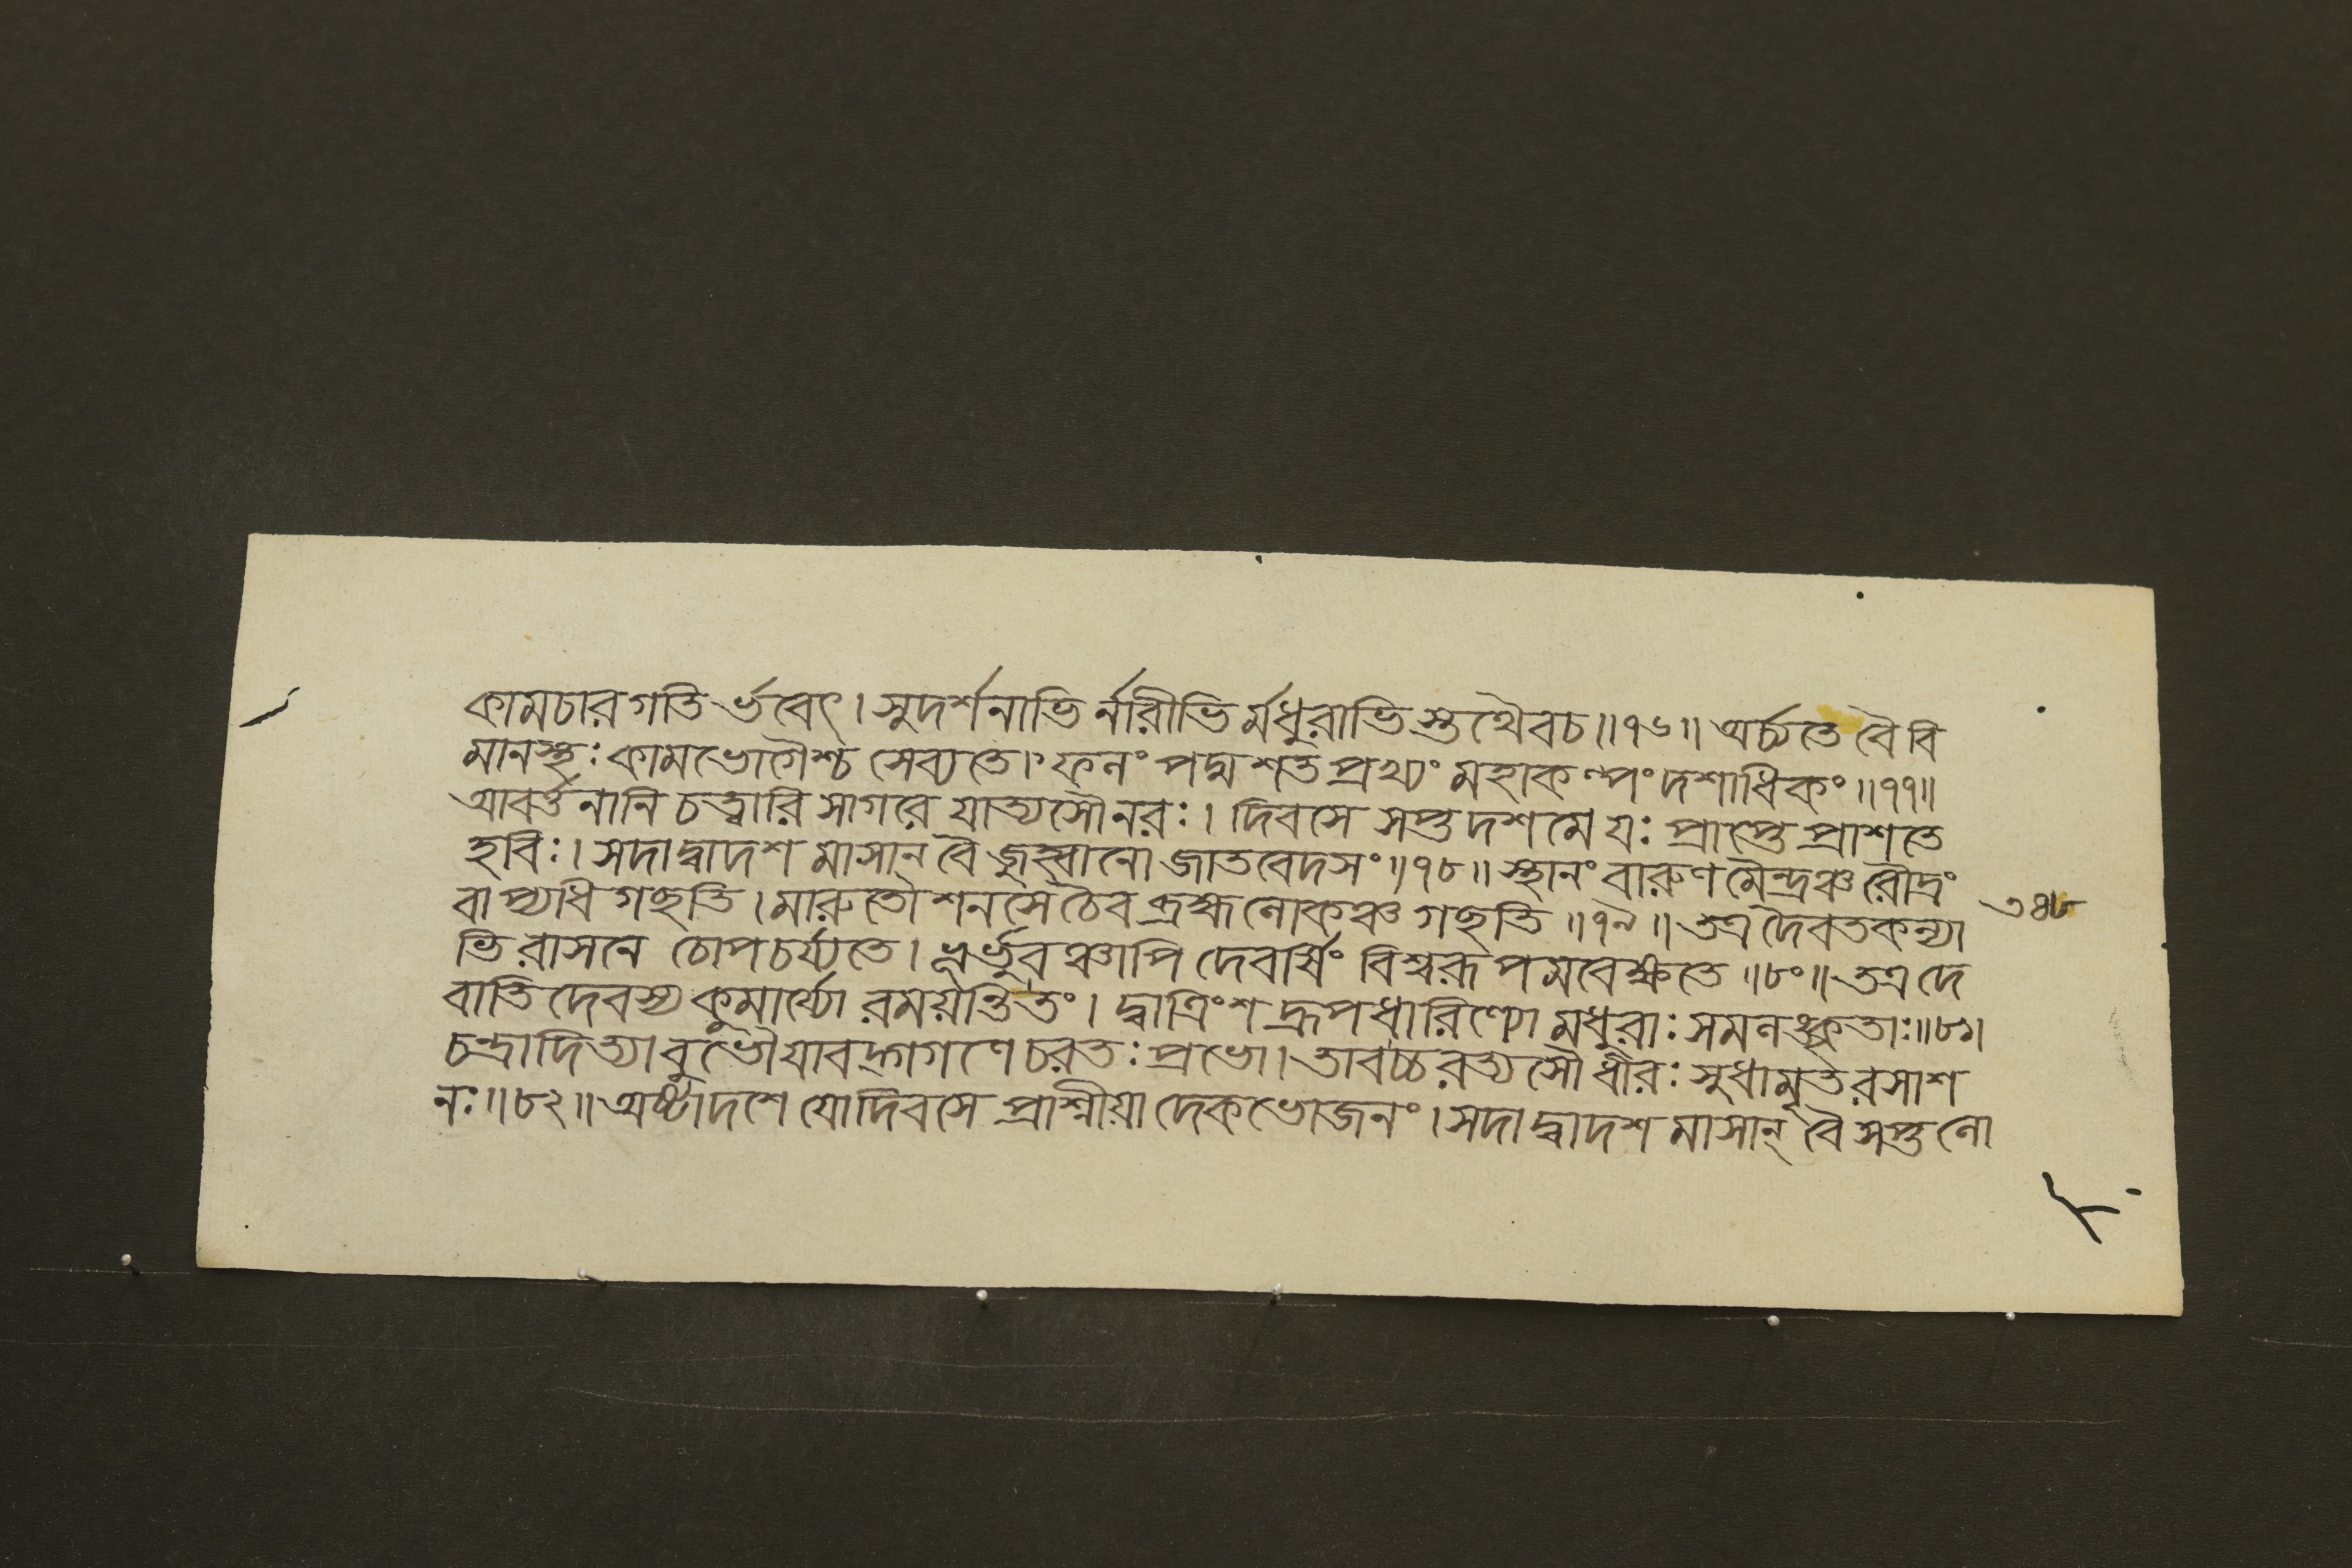 কামচারগতির্ভবেৎ। সুদর্শনাভির্নারীভির্মধুরাভিস্তথৈবচ॥৭৬॥ অর্চ্চ্যতে বৈ বি
মানস্থঃ কামভোগৈশ্চ সেব্যতে। ফলং পদ্মশতপ্রখ্যং মহাকল্পং দশাধিকং॥৭৭॥
আবর্ত্তনানি চত্বারি সাগরে যাত্যসৌনরঃ। দিবসে সপ্তদশমে যঃ প্রাপ্তে প্রাশতে
হবিঃ। সদাদ্বাদশ মাসান্ বৈ জুহ্বানো জাতবেদসং॥৭৮॥ স্থানং বারুণমৈন্দ্রঞ্চ রৌদ্রং
বাপ্যধিগছতি। মারুতৌশনসেচৈব ব্রহ্মলোকঞ্চ গছতি॥৭৯॥ তত্র দৈবতকন্যা
ভিরাসনে চোপচর্য্যতে। ভূর্ভুবঞ্চাপি দেবর্ষিং বিশ্বরূপমবেক্ষতে॥৮০॥ তত্র দে
বাতিদেবস্য কুমার্য্যো রময়ন্তিতং। দ্বাত্রিংশদ্রূপধারিণ্যো মধুরাঃ সমলঙ্কৃতাঃ॥৮১।
চন্দ্রাদিত্যাবুভৌযাবদ্গগণে চরতঃ প্রভো। তাবচ্চরত্যসৌ ধীরঃ সুধামৃতরসাশ
নঃ॥৮২॥ অষ্টাদশে যোদিবসে প্রাশ্নীয়াদেকভোজনং। সদাদ্বাদশ মাসান্ বৈ সপ্তলো
৩৪৮